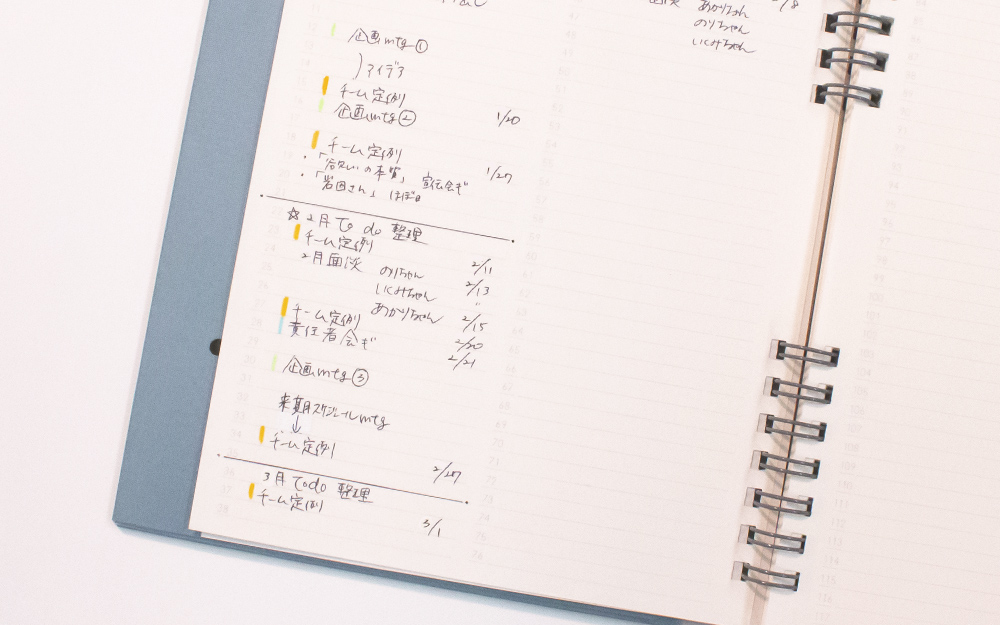 企画mtg①
アイデア
チーム定例
企画mtg② 1/20
チーム定例 1/27
・「谷川の本質」 宣伝会ぎ
・「岩田さん」 ほぼ日
☆2月 To do 整理
チーム定例 2/11
2月面談 のりちゃん 2/13
いくみちゃん 〃
あかりちゃん 2/15
チーム定例 2/20
責任者会ぎ 2/21
企画mtg③
来期スケジュールmtg
↓
チーム定例 2/27
3月 Todo 整理
チーム定例 3/1
面談 あかりちゃん 2/8
のりちゃん
いくみちゃん